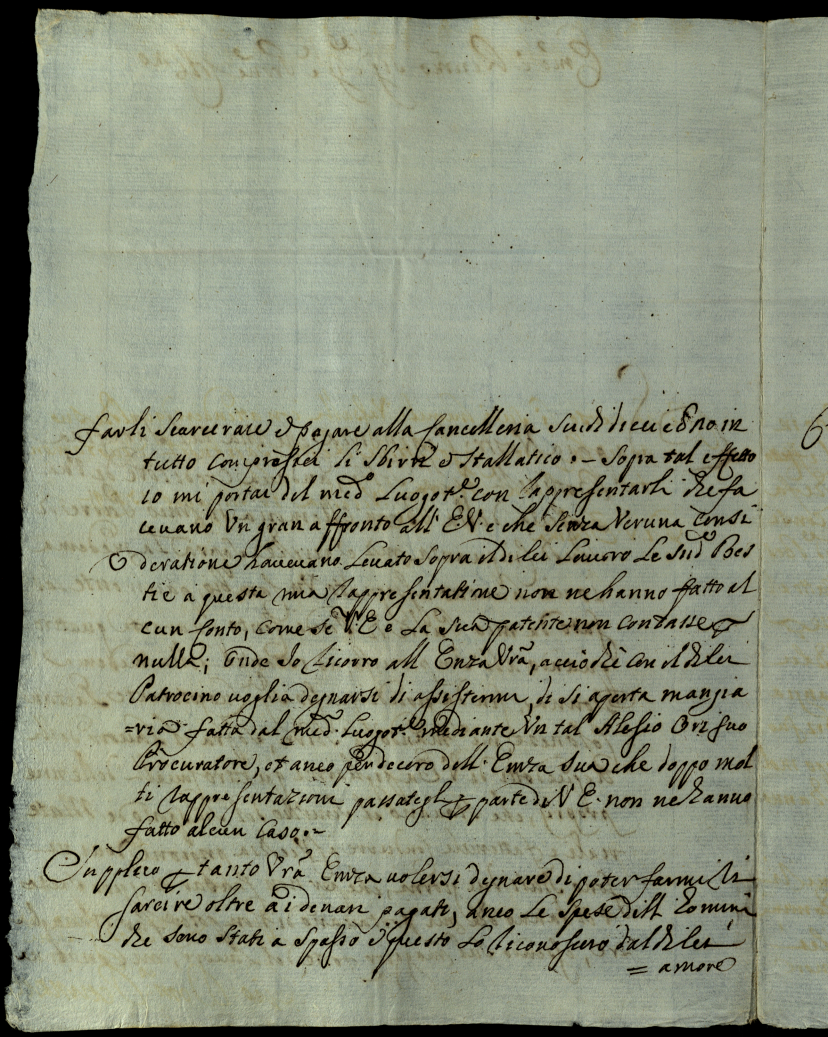 farli scarcerare e pagare alla Cancelleria scudi dieci e in
tutto compresoci li sbirri e stallatico .- Sopra tal effetto
io mi portai del med.º Luogot.e con rappresentarli che fa
cevano un gran affronto all' E.V. e che senza veruna consi
deratione havevano levato sopra il di lei lavoro le sud.e Bes
tie a questa mia rappresentatione non ne hanno fatto al
cun conto, come se V.E. e la sua patente non contasse p
nulla; onde Io ricorro all' Emza Vrã, acciò che con il di lei
Patrocinio voglia degnarsi di assistermi, di si aperta mangia
=ria fatta dal med.º Luogot.e mediante un tal Alesio suo
Procuratore, et anco per decoro dell' Emza sua che doppo mol
ti rappresentazioni passategli p parte di V.E. non ne hanno
fatto alcun caso.-
Supplico p tanto Vrã Emza volersi degnare di poter farmi ri
sarcire oltre a i denari pagati, anco le spese dell' homini
che sono stati a spasso e questo lo riconoscero dal di lei
= amore